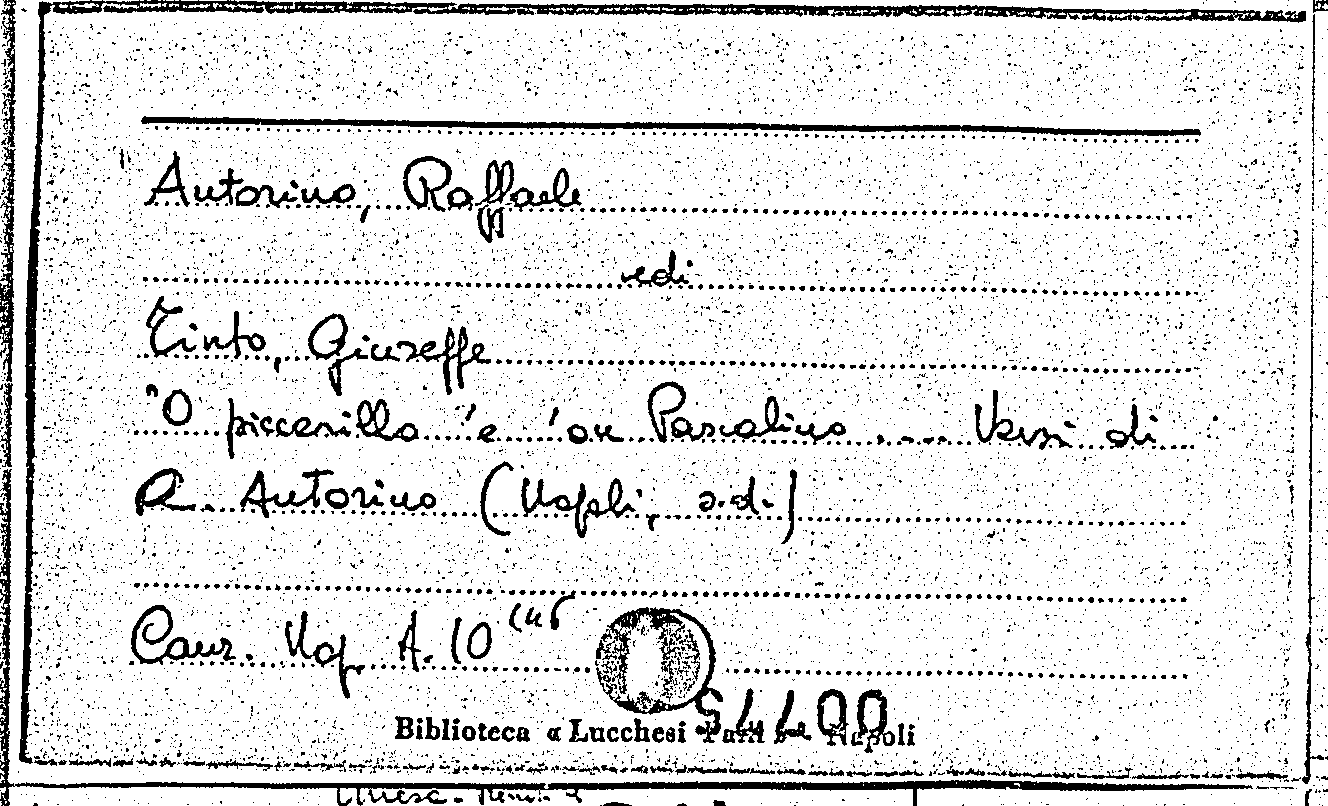 Autorino, Raffaele
vedi
Tinto, Giuseppe
"O piccerillo 'e 'on Pascalino .... Versi di
R. Autorino (Napoli, s.d.)
Canz. Nap. A. 10 (46
Biblioteca « Lucchesi Palli » - Napoli